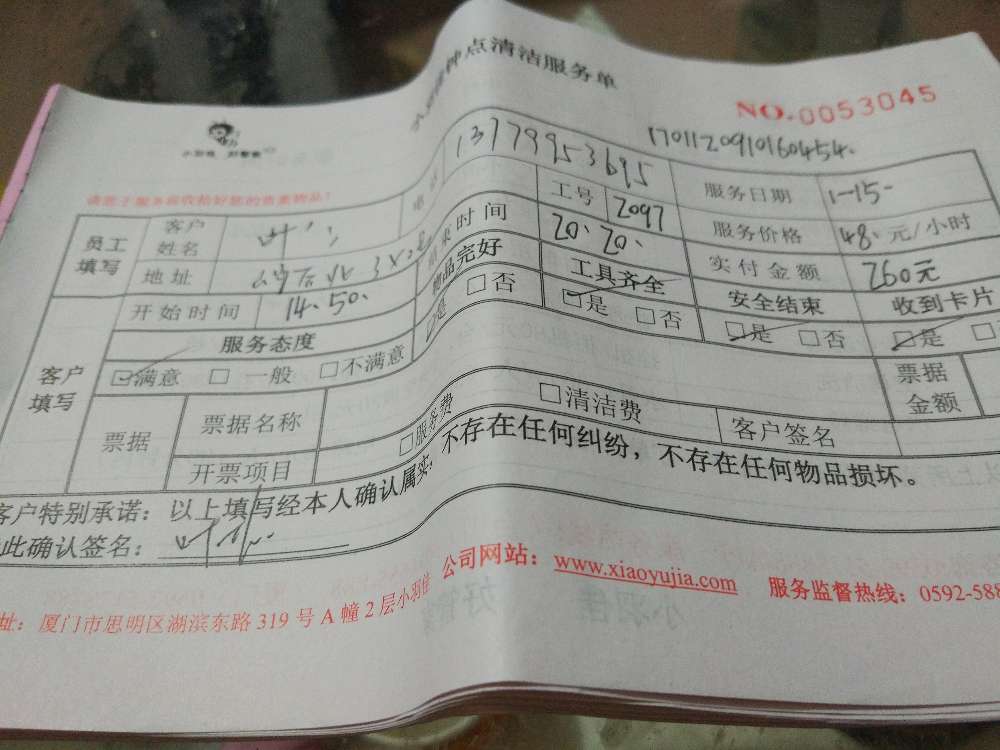 小羽佳钟点清洁服务单
NO.0053045
小羽佳 好管家
170112091060454.
请您于服务前收拾好您的贵重物品!
员工填写 客户姓名 叶 电话 13779953695 服务日期 1-15.
地址 工号 2097 服务价格 48. 元/小时
开始时间 14.50. 结束时间 20.20. 实付金额 260元
客户填写 服务态度 物品完好 工具齐全 安全结束 收到卡片
☑满意 □一般 □不满意 ☑是 □否 ☑是 □否 ☑是 □否 ☑是 □
票据 票据名称 票据金额
开票项目 □服务费 □清洁费 客户签名
客户特别承诺：以上填写经本人确认属实，不存在任何纠纷，不存在任何物品损坏。
此确认签名：
址：厦门市思明区湖滨东路319号A幢2层小羽佳 公司网站：www.xiaoyujia.com 服务监督热线：0592-588